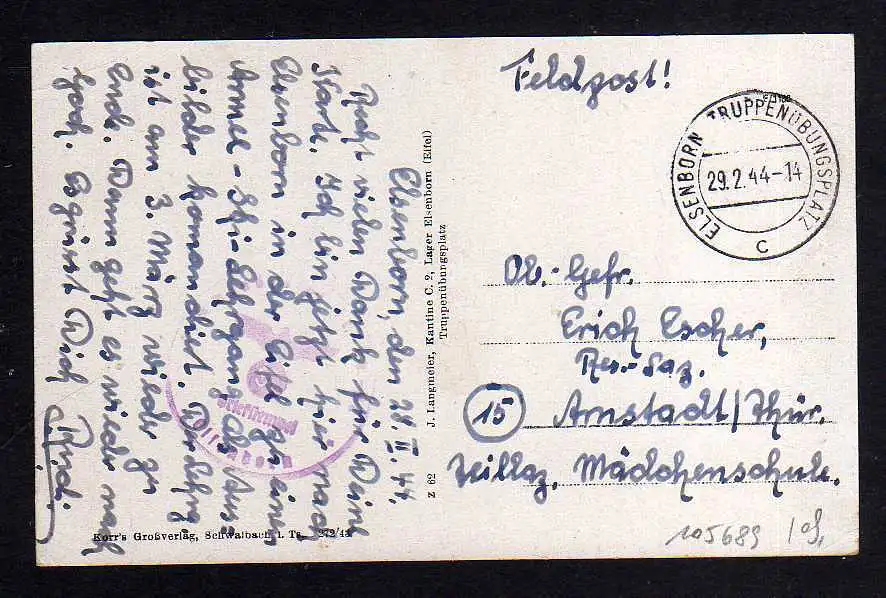 Feldpost!
ELSENBORN TRUPPENÜBUNGSPLATZ
29.2.44-14
c
Ob.-Gefr.
Erich Escher,
Res.-Laz.
15 Arnstadt/Thür.
Teillaz. Mädchenschule.
105689
Elsenborn, den 28. II. 44.
Recht vielen Dank für Deine
Karte. Ich bin jetzt hier nach
Elsenborn in der Eifel zu einem
Armee-Ski-Lehrgang als Aus-
bilder komandiert. Der Lehrg.
ist am 3. März wieder zu
Ende. Dann geht es wieder nach
Es grüßt Dich Rudi.
Z 62 J. Langmeier, Kantine C. 2, Lager Elsenborn (Eifel)
Truppenübungsplatz
Korr's Großverlag, Schwalbach i. Ts. 272/43